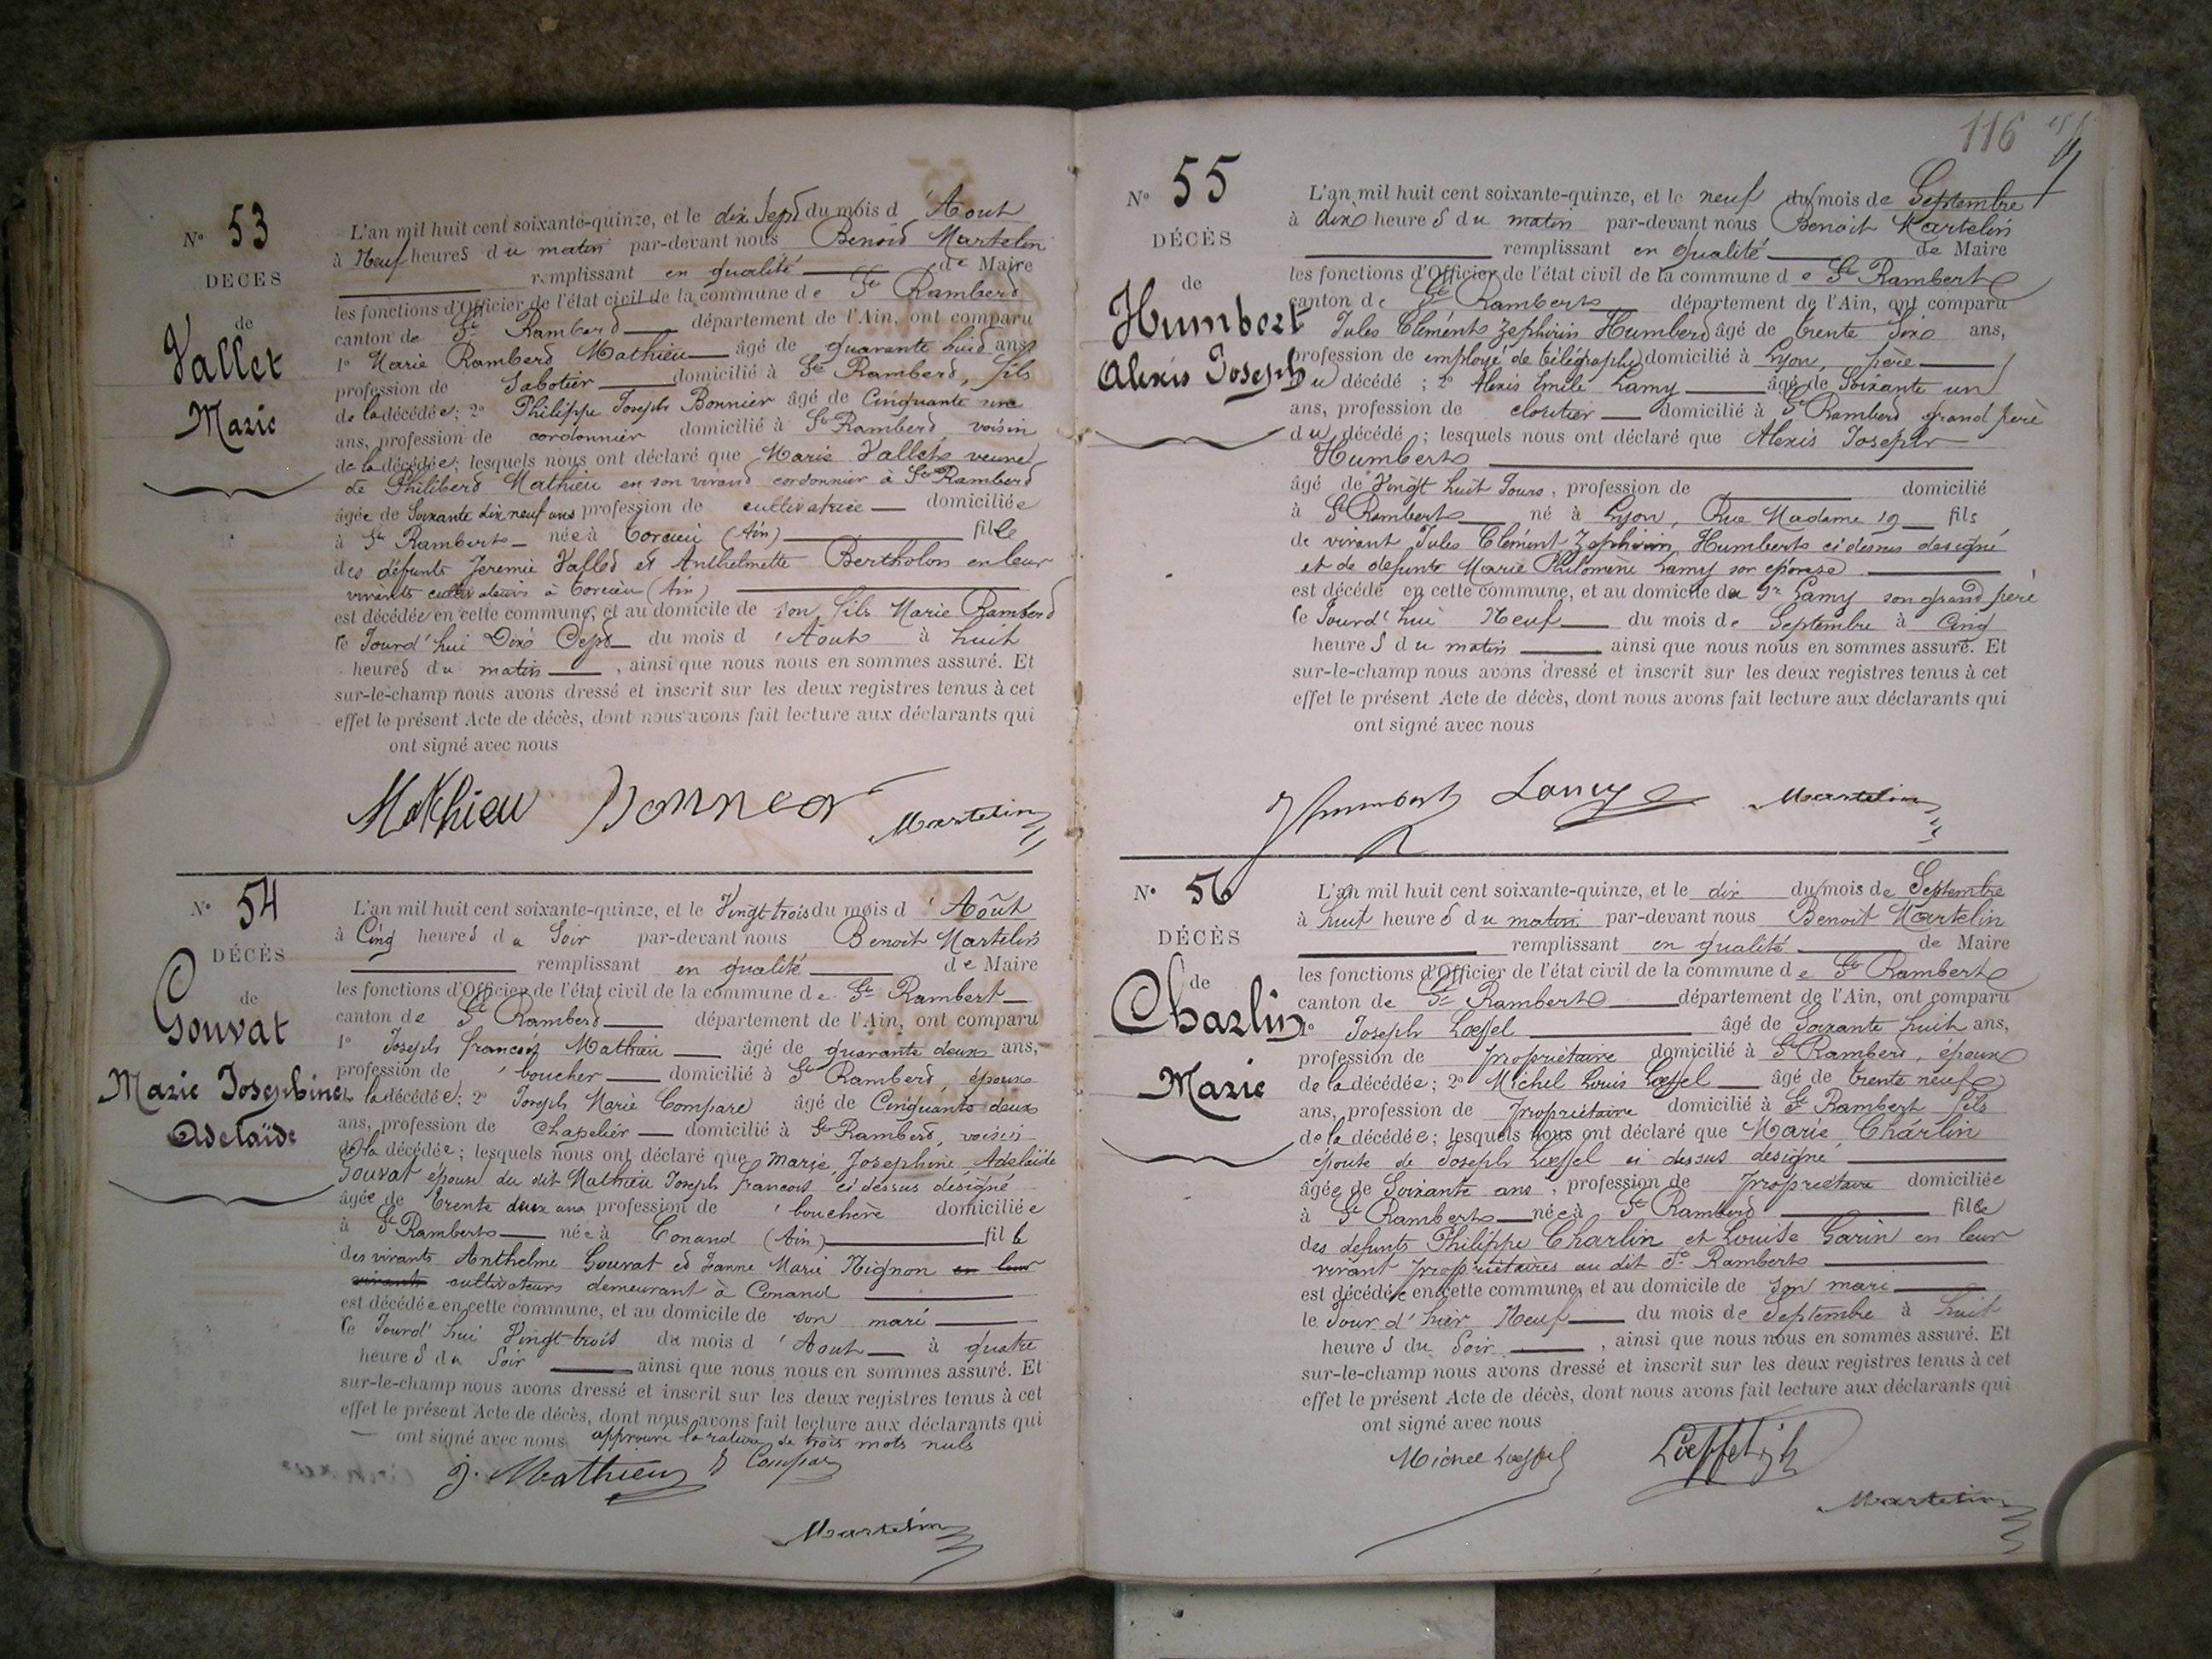 N° 53
DÉCÈS
de
Vallet
Marie
L'an mil huit cent soixante-quinze, et le dix Sept du mois d'Aout
à Neuf heures du matin par-devant nous Benoit Martelin
remplissant en qualité de Maire
les fonctions d'Officier de l'état civil de la commune de St Rambert
canton de St Rambert département de l'Ain, ont comparu
1° Marie Rambert Mathieu âgé de quarante huit ans
profession de Sabotier domicilié à St Rambert, fils
de la décédée; 2° Philippe Joseph Bonnier âgé de Cinquante une
ans, profession de cordonnier domicilié à St Rambert voisin
de la décédée; lesquels nous ont déclaré que Marie Vallet veuve
de Philibert Mathieu en son vivant cordonnier à St Rambert
âgée de Soixante dix neuf ans profession de cultivatrice domiciliée
à St Rambert née à Torcieu (Ain) fille
des défunts Jeremie Vallet et Anthelmette Bertholon en leur
vivants cultivateurs à Torcieu (Ain)
est décédée en cette commune, et au domicile de son fils Marie Rambert
le Jourd'hui Dix Sept du mois d'Aout à huit
heures du matin, ainsi que nous nous en sommes assuré. Et
sur-le-champ nous avons dressé et inscrit sur les deux registres tenus à cet
effet le présent Acte de décès, dont nous avons fait lecture aux déclarants qui
ont signé avec nous
Mathieu Bonnier Martelin
N° 54
DÉCÈS
de
Gouvat
Marie Josephine
Adelaïde
L'an mil huit cent soixante-quinze, et le Vingt-trois du mois d'Août
à Cinq heures du Soir par-devant nous Benoit Martelin
remplissant en qualité de Maire
les fonctions d'Officier de l'état civil de la commune de St Rambert
canton de St Rambert département de l'Ain, ont comparu
1° Joseph francois Mathieu âgé de quarante deux ans,
profession de boucher domicilié à St Rambert, époux
de la décédée; 2° Joseph Marie Compare âgé de Cinquante deux
ans, profession de Chapelier domicilié à St Rambert, voisin
de la décédée; lesquels nous ont déclaré que Marie, Josephine, Adelaïde
Gouvat épouse du dit Mathieu Joseph francois ci dessus désigné
âgée de Trente deux ans profession de bouchère domiciliée
à St Rambert née à Conand (Ain) fille
des vivants Anthelme Gouvat et Jeanne Marie Mignon en leur
vivants cultivateurs demeurant à Conand
est décédée en cette commune, et au domicile de son mari
le Jourd'hui Vingt-trois du mois d'Aout à quatre
heures du Soir ainsi que nous nous en sommes assuré. Et
sur-le-champ nous avons dressé et inscrit sur les deux registres tenus à cet
effet le présent Acte de décès, dont nous avons fait lecture aux déclarants qui
ont signé avec nous approuvé la rature de trois mots nuls
J. Mathieu Compare
Martelin
116
N° 55
DÉCÈS
de
Humbert
Alexis Joseph
L'an mil huit cent soixante-quinze, et le neuf du mois de Septembre
à dix heures du matin par-devant nous Benoit Martelin
remplissant en qualité de Maire
les fonctions d'Officier de l'état civil de la commune de St Rambert
canton de St Rambert département de l'Ain, ont comparu
Jules Clément Zephirin Humbert âgé de trente Six ans,
profession de employé de télégraphe domicilié à Lyon, père
du décédé; 2° Alexis Emile Lamy âgé de Soixante un
ans, profession de cloutier domicilié à St Rambert grand père
du décédé; lesquels nous ont déclaré que Alexis Joseph
Humbert
âgé de Vingt huit Jours, profession de domicilié
à St Rambert né à Lyon, Rue Madame 19 fils
de vivant Jules Clément Zephirin Humbert ci dessus designé
et de defunte Marie Philomène Lamy son épouse
est décédé en cette commune, et au domicile du Sr Lamy son grand père
le Jourd'hui Neuf du mois de Septembre à Cinq
heures du matin ainsi que nous nous en sommes assuré. Et
sur-le-champ nous avons dressé et inscrit sur les deux registres tenus à cet
effet le présent Acte de décès, dont nous avons fait lecture aux déclarants qui
ont signé avec nous
Humbert Lamy Martelin
N° 56
DÉCÈS
de
Charlin
Marie
L'an mil huit cent soixante-quinze, et le dix du mois de Septembre
à huit heures du matin par-devant nous Benoit Martelin
remplissant en qualité de Maire
les fonctions d'Officier de l'état civil de la commune de St Rambert
canton de St Rambert département de l'Ain, ont comparu
1° Joseph Lœffel âgé de Soixante huit ans,
profession de propriétaire domicilié à St Rambert, époux
de la décédée; 2° Michel Louis Lœffel âgé de trente neuf
ans, profession de propriétaire domicilié à St Rambert fils
de la décédée; lesquels nous ont déclaré que Marie Charlin
épouse de Joseph Lœffel ci dessus désigné
âgée de Soixante ans, profession de propriétaire domiciliée
à St Rambert née à St Rambert fille
des defunts Philippe Charlin et Louise Garin en leur
vivant propriétaires au dit St Rambert
est décédée en cette commune, et au domicile de son mari
le Jour d'hier Neuf du mois de Septembre à huit
heures du Soir, ainsi que nous nous en sommes assuré. Et
sur-le-champ nous avons dressé et inscrit sur les deux registres tenus à cet
effet le présent Acte de décès, dont nous avons fait lecture aux déclarants qui
ont signé avec nous
Michel Lœffel Lœffel
Martelin